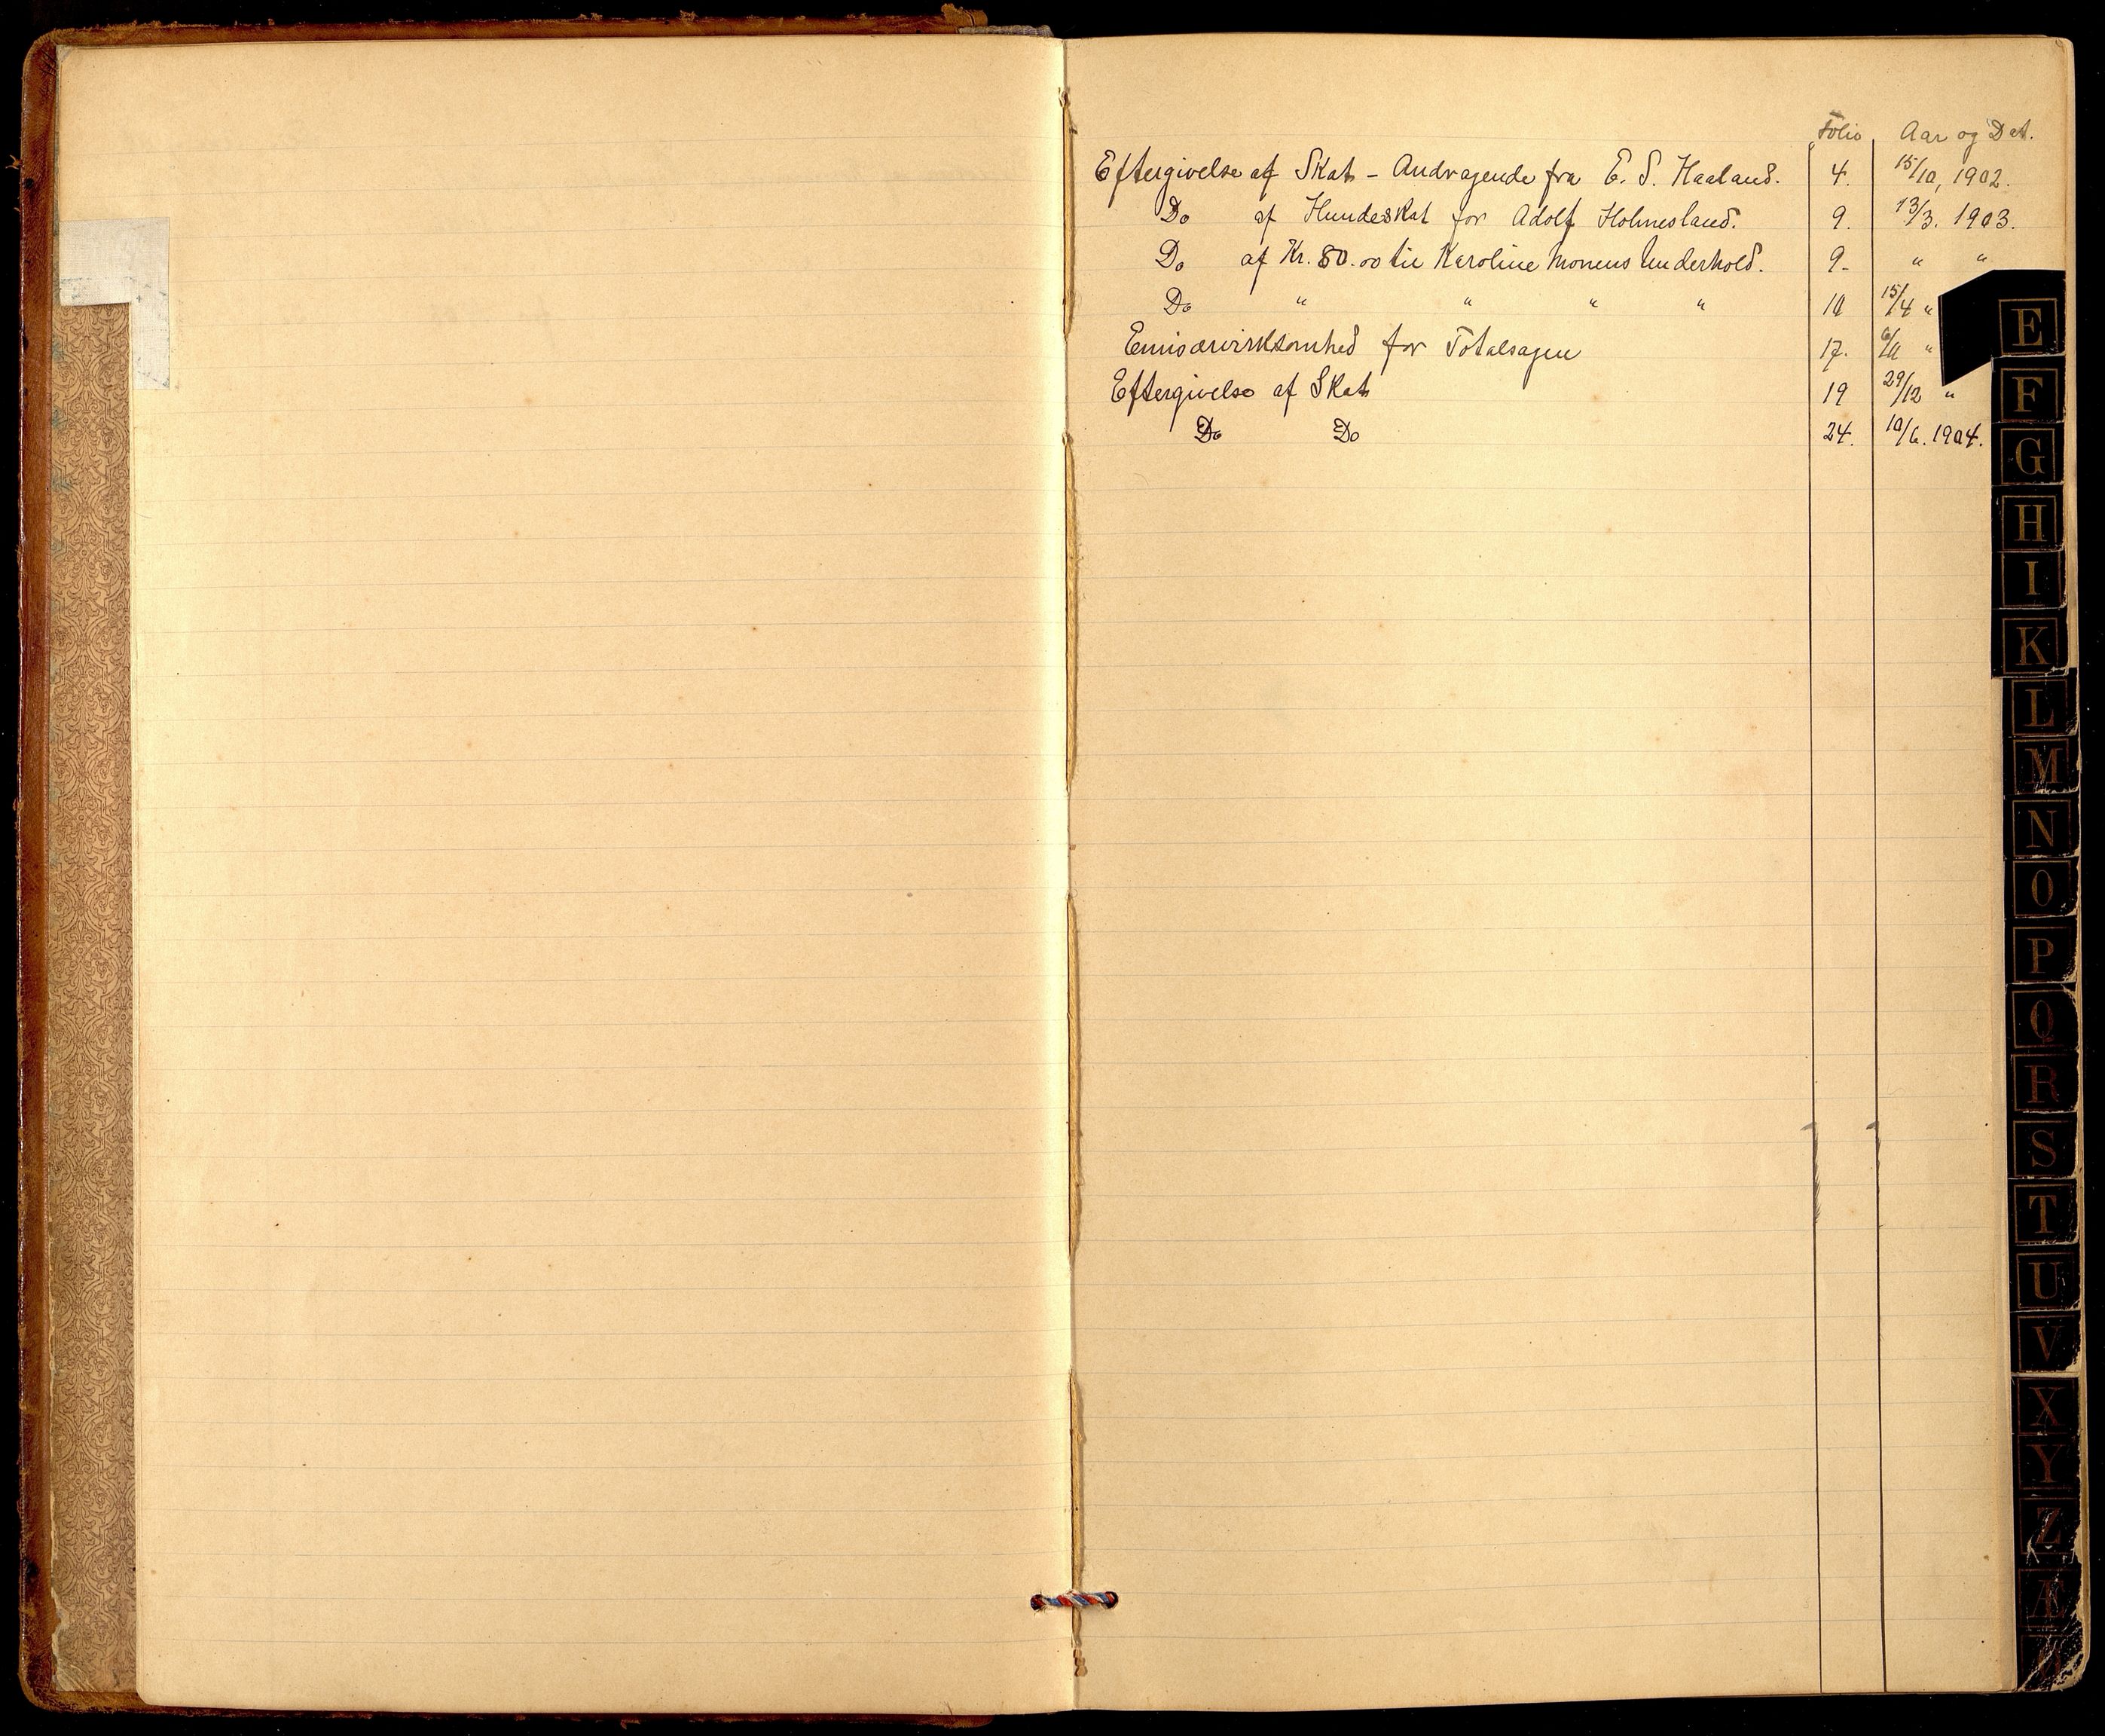 Folio Aar og Dat.
Eftergivelse af Skat - Andragende fra E. S. Haaland. 4. 15/10, 1902.
Do af Hundeskat for Adolf Holmesland. 9. 13/3. 1903.
Do af Kr. 80.00 til Karoline Monens Underhold. 9. " "
Do " " " " 10 15/4 "
Emisærvirksomhed for Totalsagen 17. 6/11 "
Eftergivelse af Skat 19 29/12 "
Do Do 24. 10/6. 1904.
E
F
G
H
I
K
L
M
N
O
P
Q
R
S
T
U
V
X
Y
Z
Æ